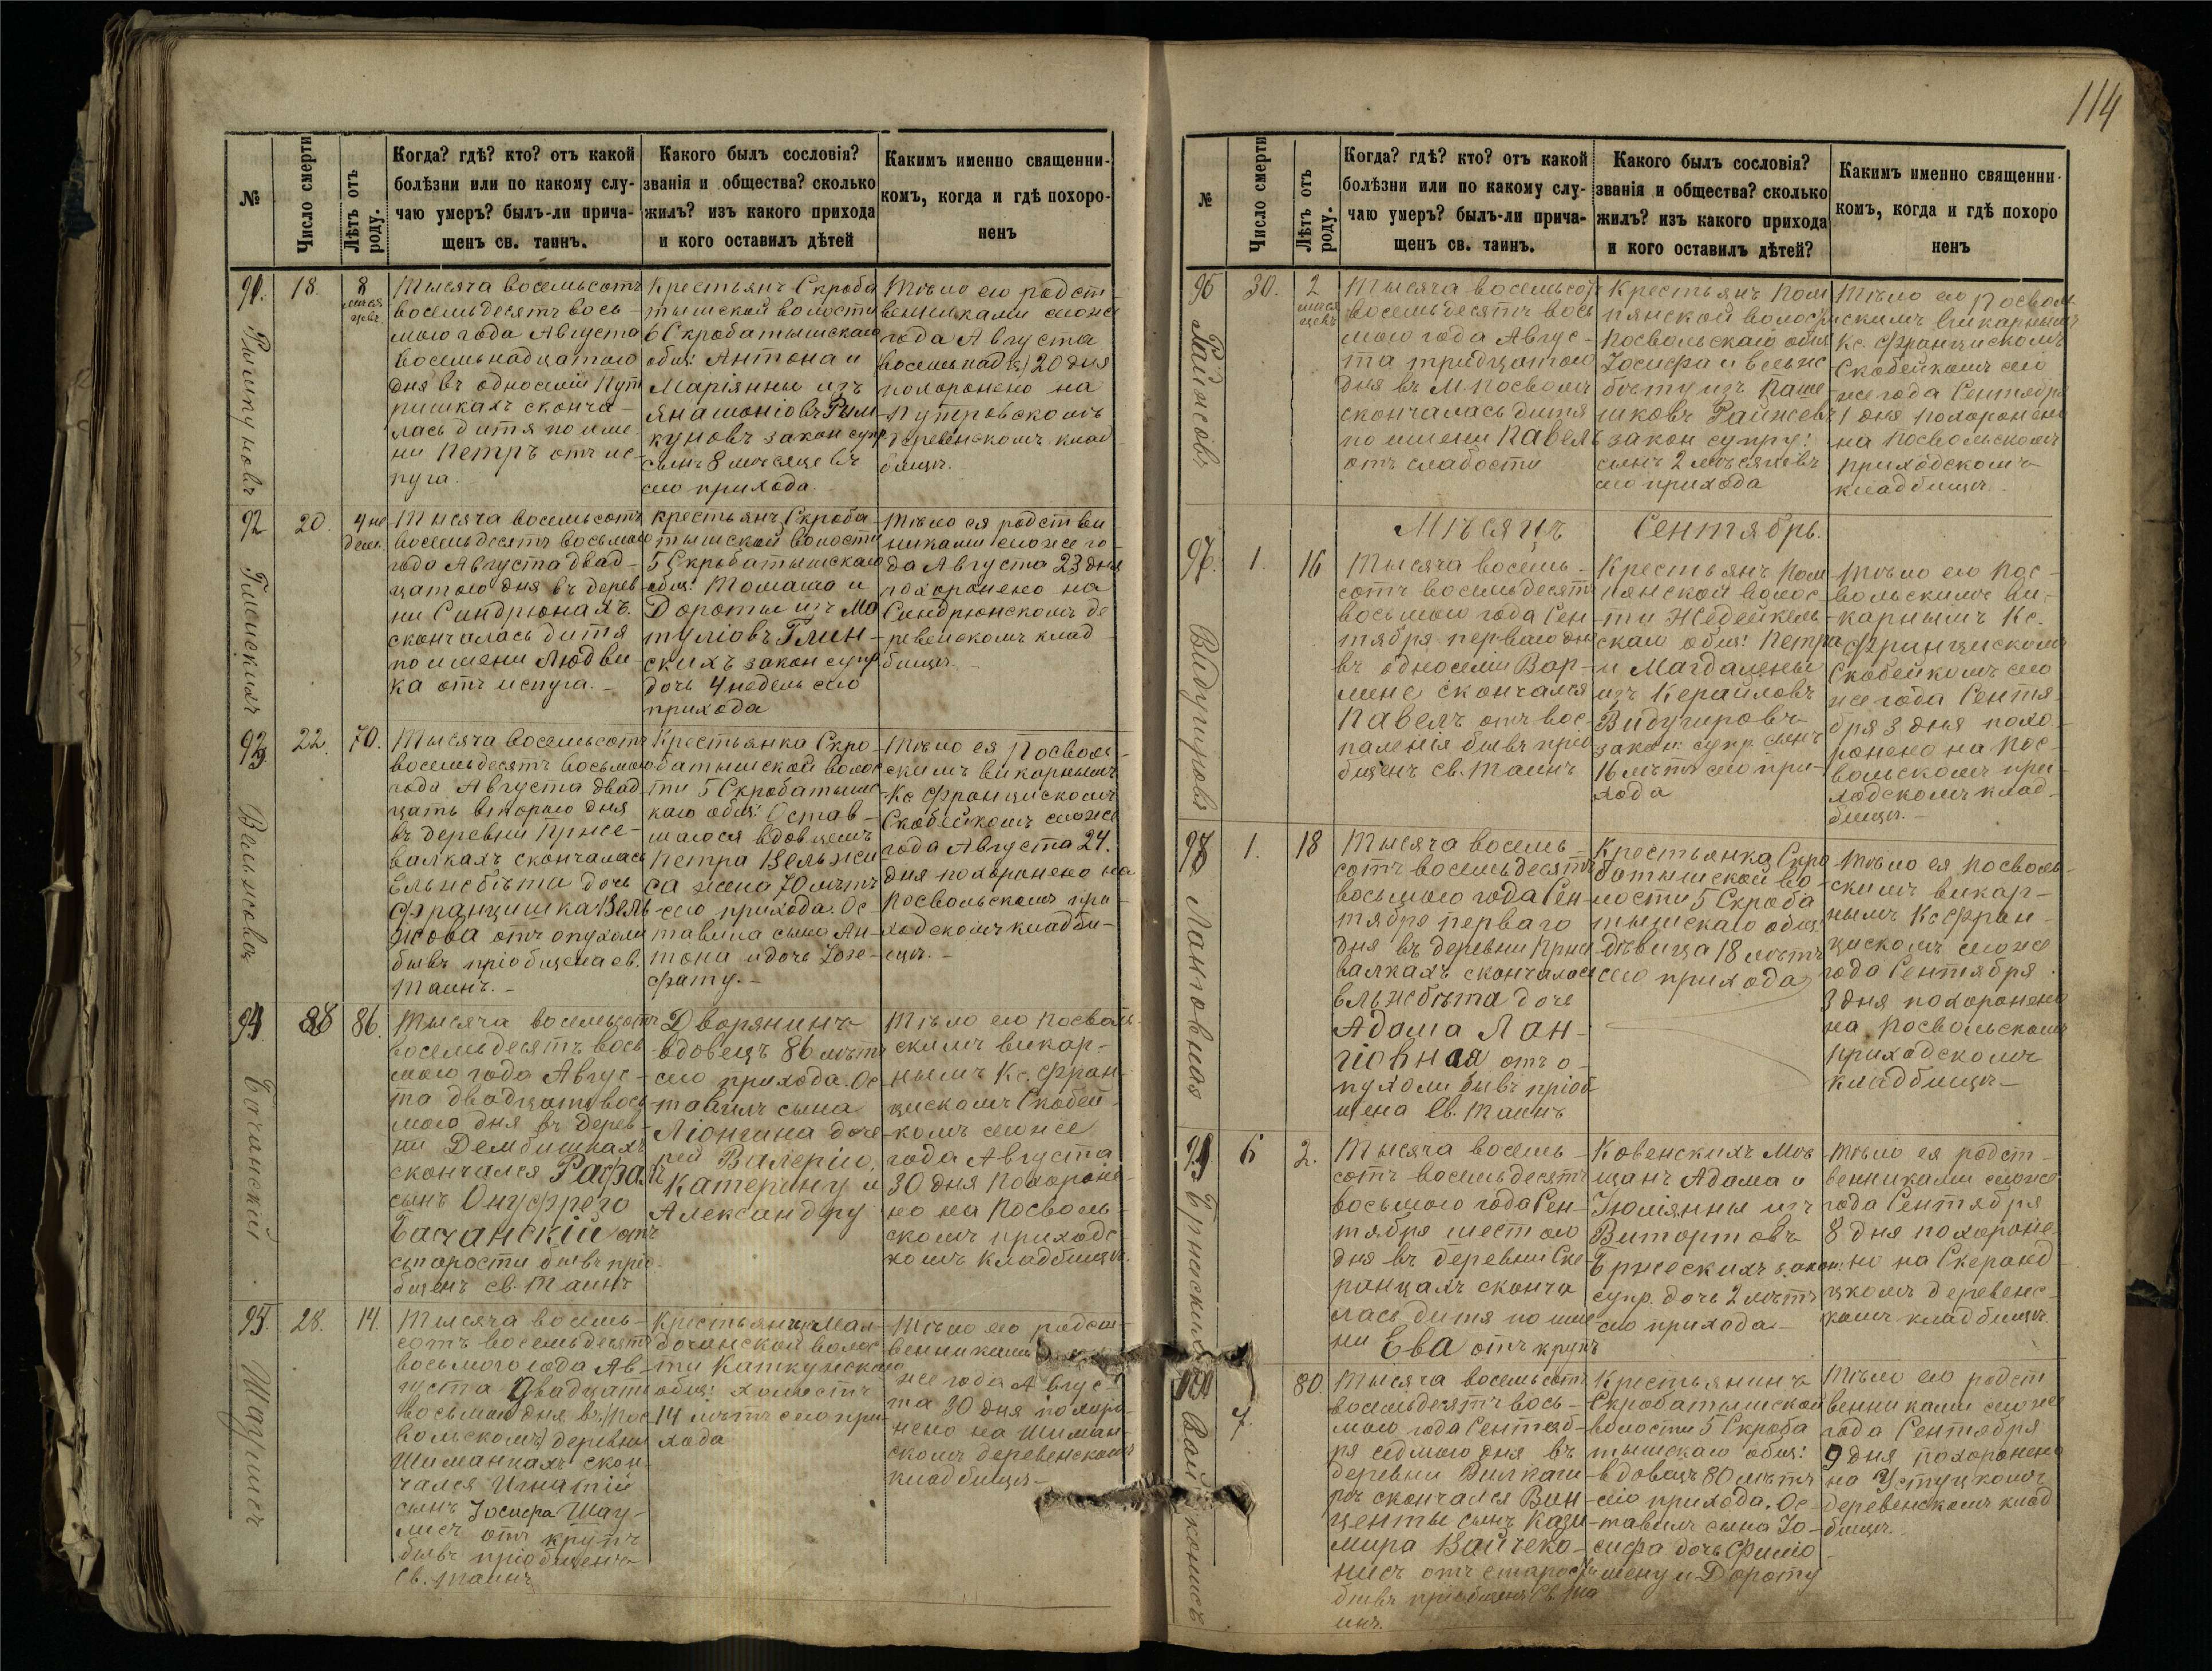 114
№
Число смерти
Лѣтъ отъ роду.
Когда? гдѣ? кто? отъ какой
болѣзни или по какому слу-
чаю умеръ? былъ-ли прича-
щенъ св. таинъ.
Какого былъ сословія?
званія и общества? сколько
жилъ? изъ какого прихода
и кого оставилъ дѣтей
Какимъ именно священни-
комъ, когда и гдѣ похоро-
ненъ
91.
18.
8
меся
цевъ
Тысяча восемьсотъ
восемьдесятъ вось-
мого года Августа
восемьнадцатого
дня въ односелій Пут
ришкахъ сконча-
лась дитя по име
ни Петръ отъ ис-
пуга.
Крестьянъ Скроба
тышской волости
6 Скробатышскаго
общ: Антона и
Маріянны изъ
закон супр
сынъ 8 месяцевъ
сего прихода.
Тѣло его родст-
венниками сегоже
года Августа
20 дня
похоронено на
Путровскомъ
деревенскомъ клад
бищѣ.
92
20.
4 не
дели.
Глинскихъ
Тысяча восемьсотъ
восемьдесятъ восьмого
года Августа двад-
цатого дня въ дерев
ни Синдрюнахъ
скончалась дитя
по имени Людви-
ка отъ испуга.
крестьянъ Скроба-
тышской волости
5 Скробатышскаго
общ: Томаша и
Дороты изъ Мо
туліовъ Глин-
скихъ закон супр
дочь 4 недель сего
прихода
Тѣло ея родстве
никами сегоже го-
да Августа 23 дня
похоронено на
Синдрюнскомъ де
ревенскомъ клад
бищѣ.
93
22.
70.
Вельжова
Тысяча восемьсотъ
восемьдесятъ восьмого
года Августа двад
цать второго дня
въ деревни Прысе-
валкахъ скончалась
Ельжбѣта дочь
Францишка Вель
жова отъ опухоли
бывъ пріобщена св.
Таинъ.
Крестьянка Скро-
батышской волос
ти 5 Скробатышс
каго общ: Остав-
шагося вдовцемъ
Петра Вельжи
са жена 70 лѣтъ
сего прихода. Ос-
тавила сына Ан-
тона и дочь Юзе-
фату.
Тѣло ея Посволь-
скимъ викарнымъ
Кс Францискомъ
Скобейкомъ сегоже
года Августа 24.
дня похоронено на
Посвольскомъ при
ходскомъ кладби-
щѣ.
94
28
86.
Бачанскій
Тысяча восемьсотъ
восемьдесятъ вось
мого года Авгус-
та двадцать вось
мого дня въ дерев-
ни Дембишкахъ
скончался Рафалъ
сынъ Онуфрего
Бачанскій отъ
старости бывъ пріо
бщенъ св. Таинъ
Дворянинъ
вдовецъ 86 лѣтъ
сего прихода. Ос
тавилъ сына
Ліонгина доче
рей Валерію,
Катерину и
Александру
Тѣло его Посволь-
скимъ викар-
нымъ Кс. Фран-
цискомъ Скобей-
комъ сегоже
года Августа
30 дня похороне-
но на Посволь-
скомъ приходс
комъ кладбищѣ.
95.
28.
14.
Шаулисъ
Тысяча восемь-
сотъ восемьдесятъ
восьмого года Ав-
густа Двадцать
восьмого дня въ Пос
вольскомъ деревни
Шиманцахъ скон-
чался Игнатій
сынъ Іосифа Шау-
лисъ отъ крупъ
бывъ пріобщенъ
Св. Таинъ
Крестьянъ
волос
ти Каткунскаго
общ: холостъ
14 лѣтъ сего при-
хода
Тѣло его родст-
венниками
же года Авгус-
та 30 дня похоро-
нено на Шиман-
скомъ деревенскомъ
кладбищѣ
№
Число смерти
Лѣтъ отъ роду.
Когда? гдѣ? кто? отъ какой
болѣзни или по какому слу-
чаю умеръ? былъ-ли прича-
щенъ св. таинъ.
Какого былъ сословія?
званія и общества? сколько
жилъ? изъ какого прихода
и кого оставилъ дѣтей?
Какимъ именно священни-
комъ, когда и гдѣ похоро
ненъ
96
30.
2
меся
цевъ
Райжовъ
Тысяча восемьсотъ
восемьдесятъ вось
мого года Авгус-
та тридцатого
дня въ М Посволѣ
скончалась дитя
по имени Павелъ
отъ слабости
Крестьянъ Пом
пянской волости
Посвольскаго общ:
Іосифа и Ельж
бѣты изъ Паше
шковъ Райжовъ
закон супру:
сынъ 2 месяцевъ
сего прихода
Тѣло его Посволь
скимъ викарнымъ
Кс. Францискомъ
Скобейкомъ сего
же года Сентября
1 дня похоронено
на Посвольскомъ
приходскомъ
кладбищѣ
Мѣсяцъ Сентябрь.
97.
1.
16
Видугировъ
Тысяча восемь-
сотъ восемьдесятъ
восьмого года Сен-
тября перваго дня
въ односели Вар-
мине скончался
Павелъ отъ вос-
паленія бывъ пріо
бщенъ св. Таинъ
Крестьянъ Пом
пянской волос-
ти Жедейкель-
скаго общ: Петра
и Магдалены
изъ Керайловъ
Видугировъ
закон: супр. сынъ
16 лѣтъ сего при-
хода
Тѣло его Пос-
вольскимъ ви-
карнымъ Кс.
Францискомъ
Скобейкомъ сего
же года Сентя-
бря 3 дня похо-
ронено на Пос-
вольскомъ при-
ходскомъ клад-
бищѣ.
1.
18
Тысяча восемь-
сотъ восемьдесятъ
восьмого года Сен-
тября перваго
дня въ деревни Прысе
валкахъ скончалась
Ельжбѣта дочь
Адама Лан-
гіовная отъ о-
пухоли бывъ пріоб
щена Св. Таинъ
Крестьянка Скро
батышской во-
лости 5 Скроба
тышскаго общ:
Дѣвица 18 лѣтъ
сего прихода
Тѣло ея Посволь-
скимъ викар-
нымъ Кс Фран-
цискомъ сегоже
года Сентября
3 дня похоронено
на Посвольскомъ
приходскомъ
кладбищѣ
6
2.
Бржескихъ
Тысяча восемь-
сотъ восемьдесятъ
восьмого года Сен-
тября шестого
дня въ деревни Ске
ранцахъ сконча
лась дитя по име
ни Ева отъ крупъ
Ковенскихъ Мѣ
щанъ Адама и
Юліянны изъ
Витортовъ
Бржескихъ закон:
супр. дочь 2 лѣтъ
сего прихода
Тѣло ея родст-
венниками сегоже
года Сентября
8 дня похороне-
но на Скеранд
цкомъ деревенс-
комъ кладбищѣ.
7
80
Тысяча восемьсотъ
восемьдесятъ вось-
мого года Сентяб-
ря седмого дня въ
деревни
скончался Вин-
центы сынъ Кази-
мира Вайчеко-
нисъ отъ старости
бывъ пріобщенъ Св. Та
инъ.
Крестьянинъ
Скробатышской
волости 5 Скроба
тышскаго общ:
вдовецъ 80 лѣтъ
сего прихода. Ос-
тавилъ сына Іо-
сифа дочь Фило
мену и Дороту
Тѣло его родст
венниками сегоже
года Сентября
9 дня похоронено
на
деревенскомъ клад
бищѣ.